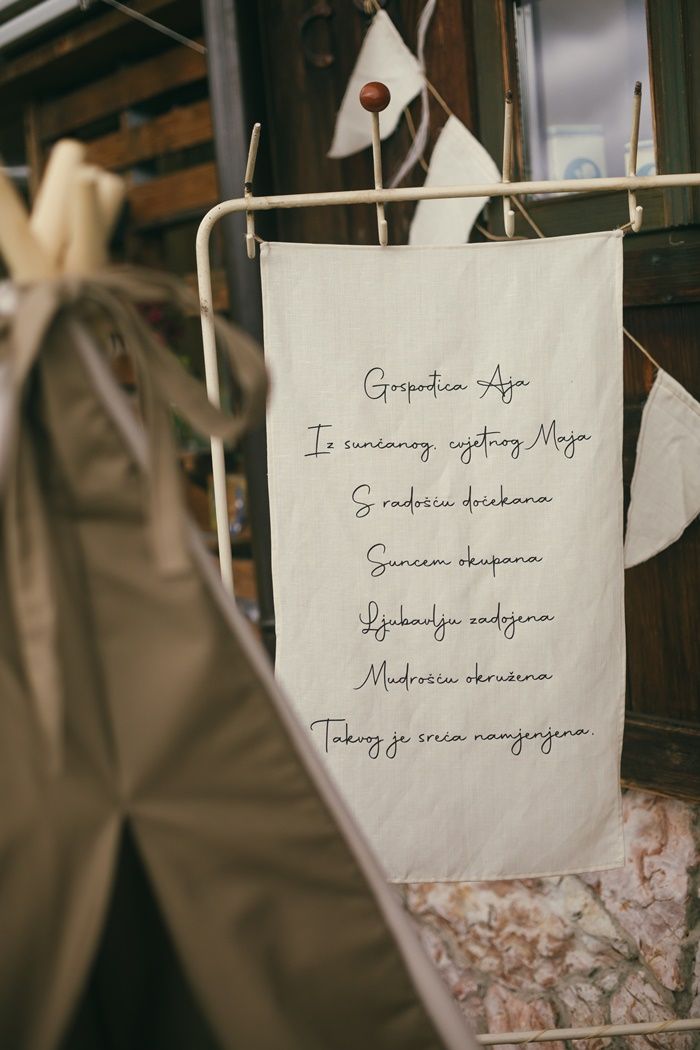 Gospođica Aja
Iz sunčanog, cvjetnog Maja
S radošću dočekana
Suncem okupana
Ljubavlju zadojena
Mudrošću okružena
Takvoj je sreća namjenjena.